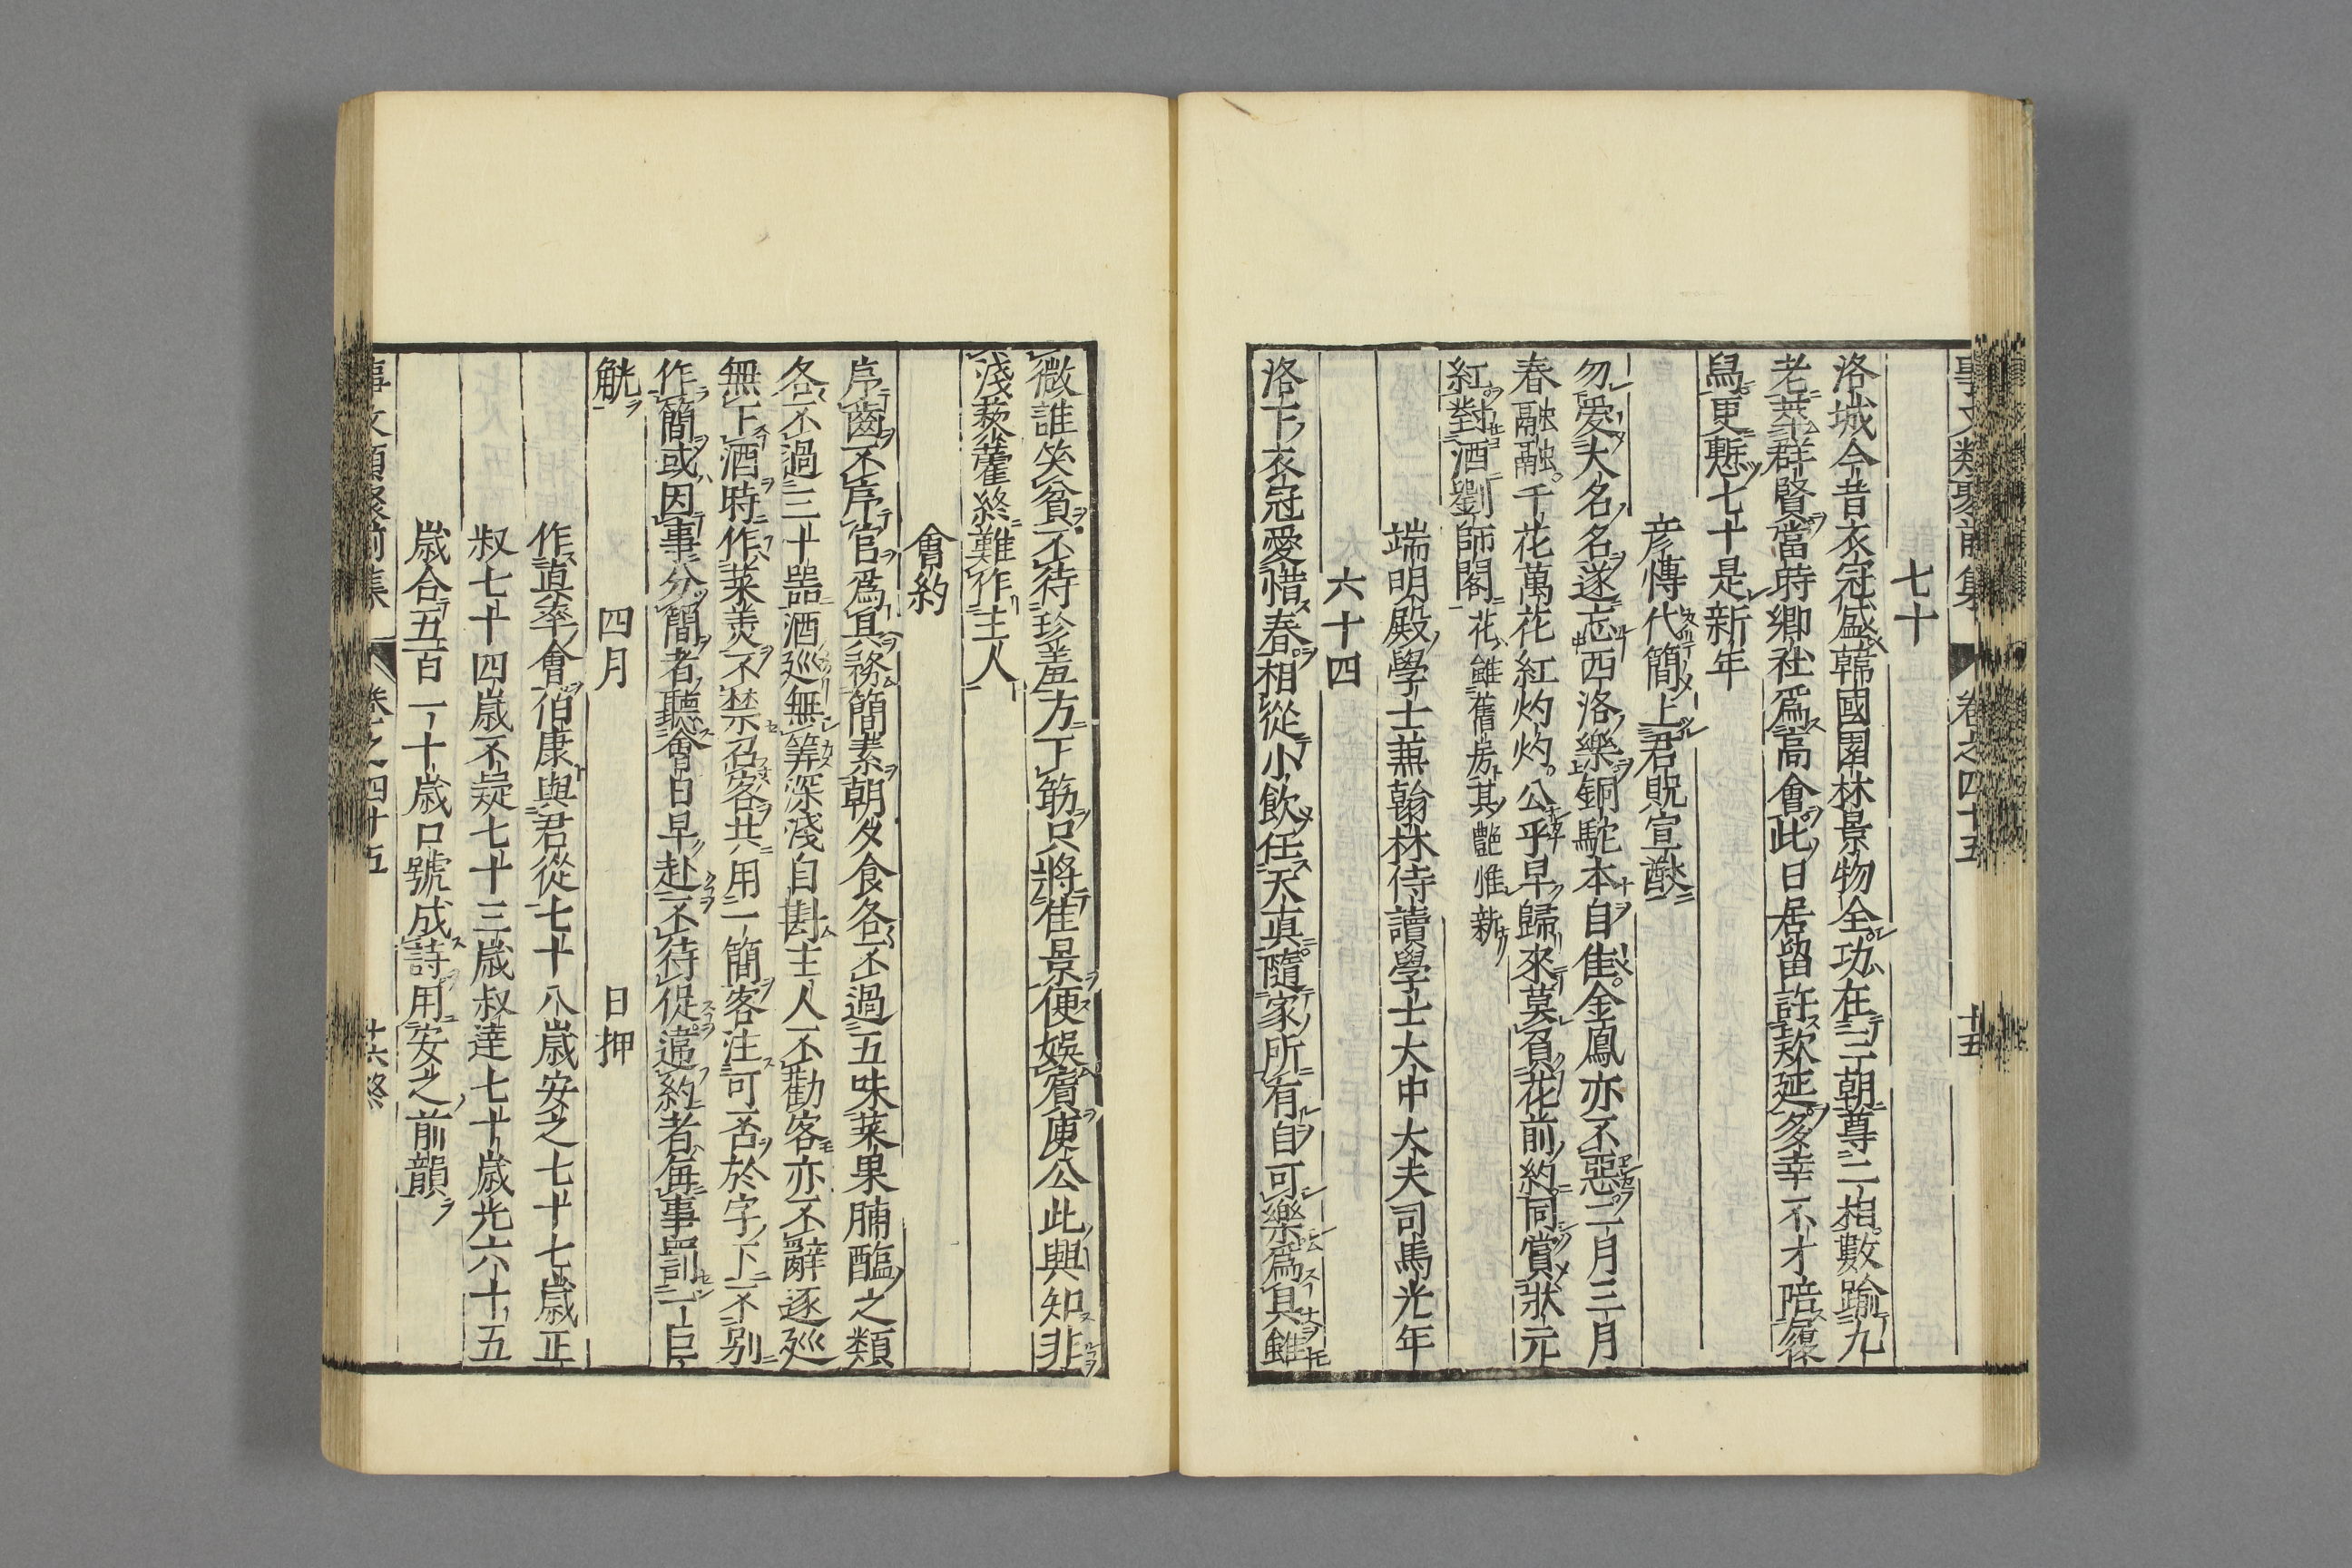 事文類聚前集 卷之四十五 十五
七十
洛城今昔衣冠盛韓國園林景物全功在三朝尊二相數踰九
老萃群賢當時卿社爲高會此日居留許款延多幸不才陪履
舄更慙七十是新年
彦博代簡上君貺宣猷
勿愛大名名遂忘西洛樂銅駝本自佳金鳳亦不惡二月三月
春融融千花萬花紅灼灼公乎早歸來莫負花前約同賞狀元
紅對酒劉師閣花雖舊房其艷惟新
端明殿學士兼翰林侍讀學士大中大夫司馬光年
六十四
洛下衣冠愛惜春相從小飲任天真隨家所有自可樂爲具雖
微誰笑貧不待珍羞方下筯只將佳景便娛賓庾公此興知非
淺藜藿終難作主人
會約
序齒不序官爲具務簡素朝夕食各不過五味菜果脯醢之類
各不過三十器酒巡無筭深淺自斟主人不勸客亦不辭逐巡
無下酒時作菜羮不禁召客共用一簡客注可否於字下不別
作簡或因事分簡者聽會日早赴不待促違約者每事罰一巨
觥
四月 日押
作眞率會伯康與君從七十八歲安之七十七歲正
叔七十四歲不疑七十三歲叔達七十歲光六十五
歲合五百一十歲口號成詩用安之前韻
事文類聚前集 卷之四十五 十六終